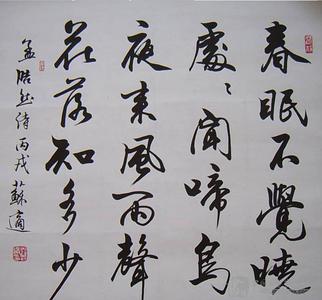 春眠不覺曉
處々聞啼鳥
夜来風雨聲
花落知多少
孟浩然詩丙戌蘇適